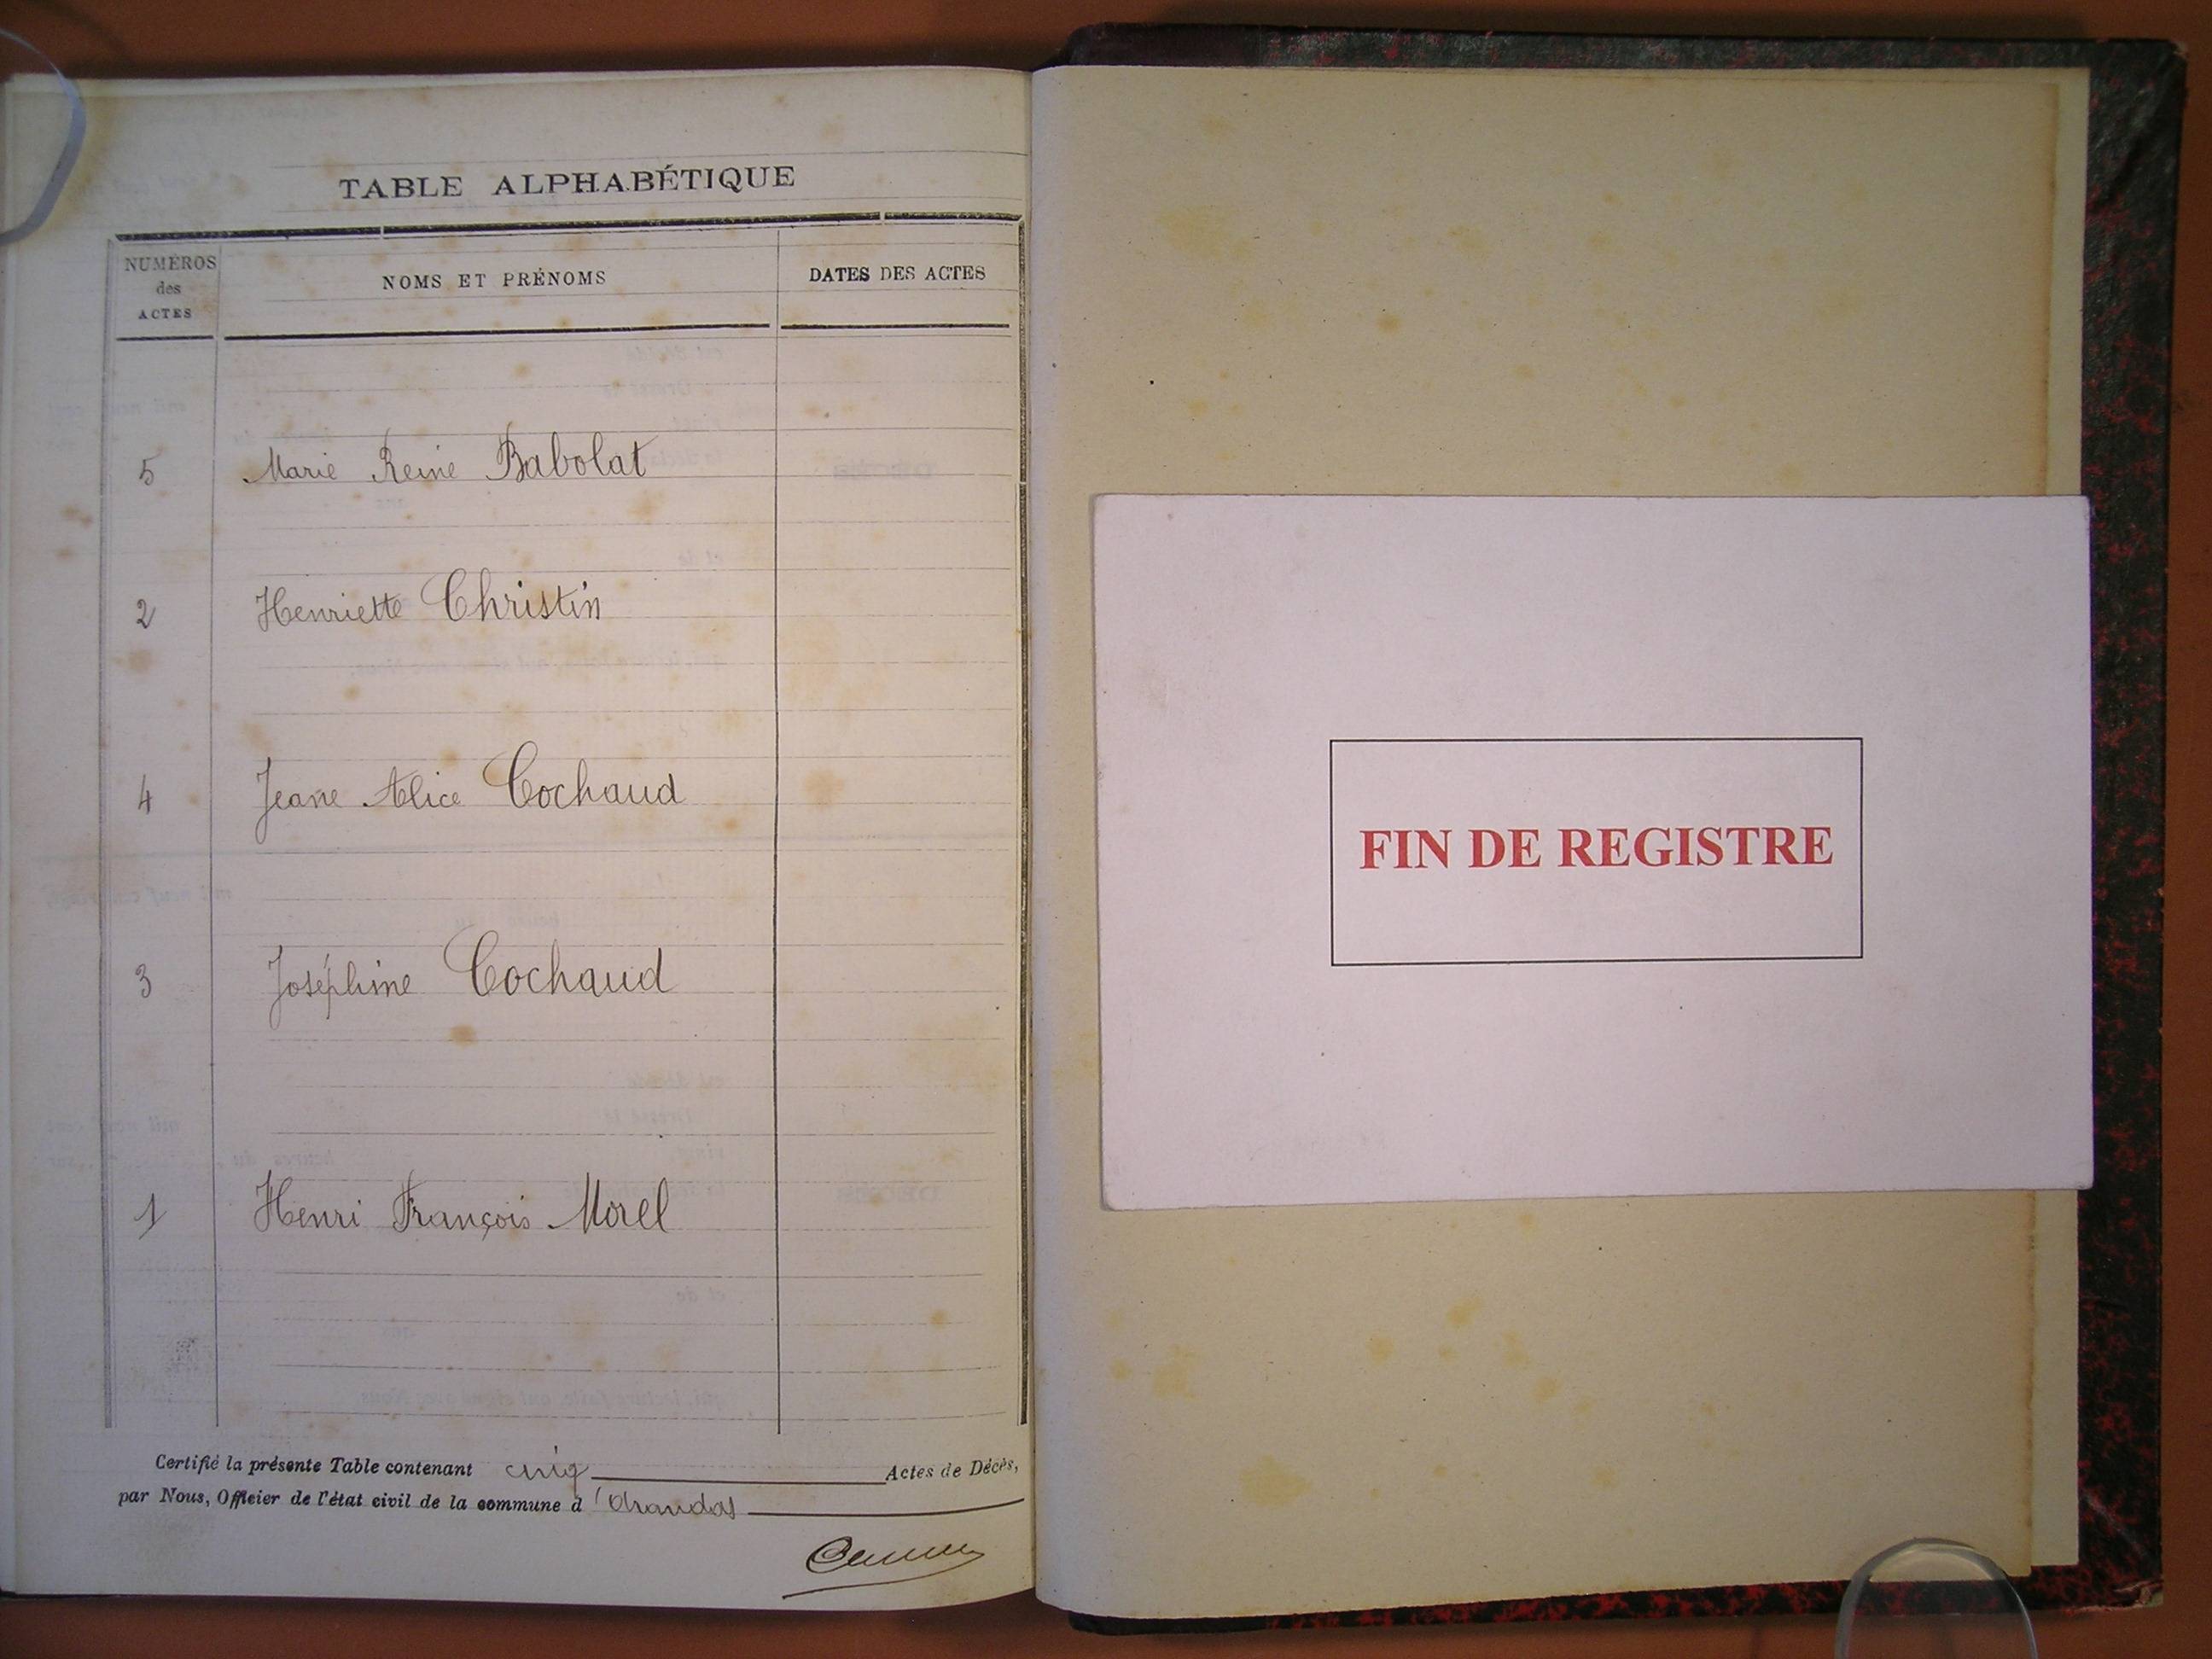 TABLE ALPHABÉTIQUE
NUMÉROS
des
ACTES
NOMS ET PRÉNOMS
DATES DES ACTES
5 Marie Reine Babolat
2 Henriette Christin
4 Jeane Alice Cochaud
3 Joséphine Cochaud
1 Henri François Morel
Certifié la présente Table contenant cinq Actes de Décès,
par Nous, Officier de l'état civil de la commune d
FIN DE REGISTRE